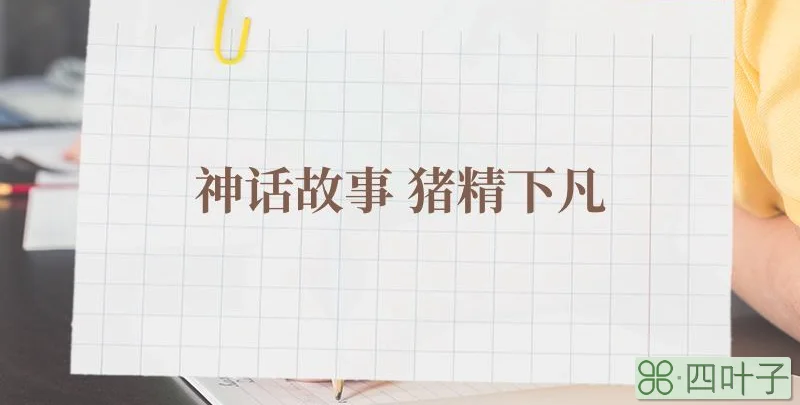 神话故事 猪精下凡
四叶子